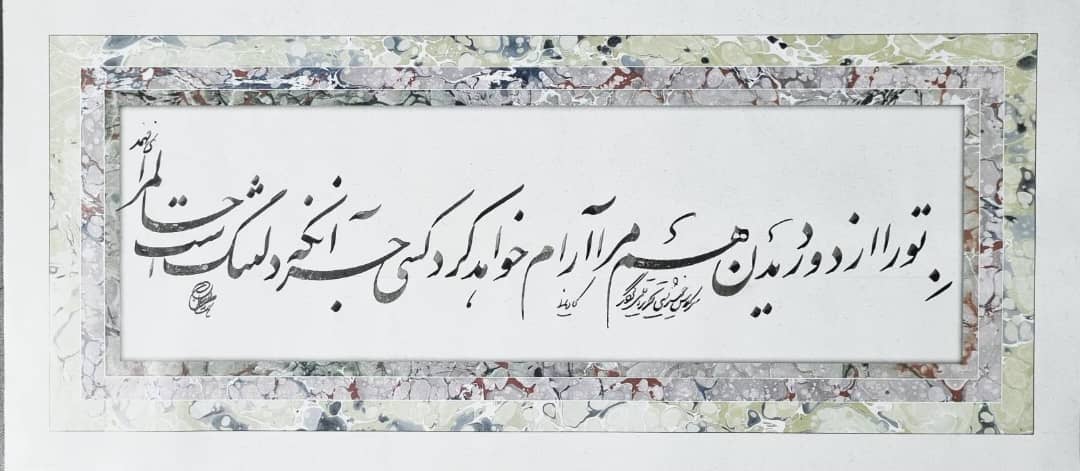 تو را از دور دیدن هم مرا آرام خواهد کرد کسی جز آنکه دلتنگ است حالم را نمی‌فهمد